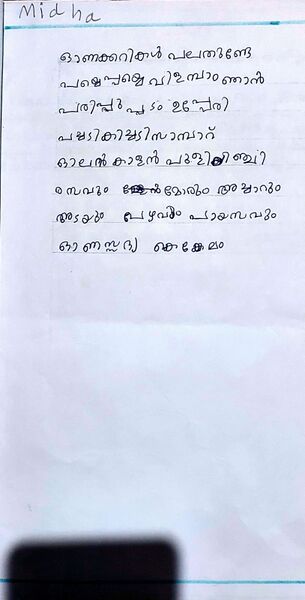 Midha
ഓണക്കറികൾ പലതുണ്ടേ
പയ്യെപ്പയ്യെ വിളമ്പാം ഞാൻ
പരിപ്പു പപ്പടം ഉപ്പേരി
പച്ചടി കിച്ചടി സാമ്പാറ്
ഓലൻ കാളൻ പുളിയിഞ്ചി
രസവും മോരും അച്ചാറും
അടയും പഴവും പായസവും
ഓണസ്സദ്യ